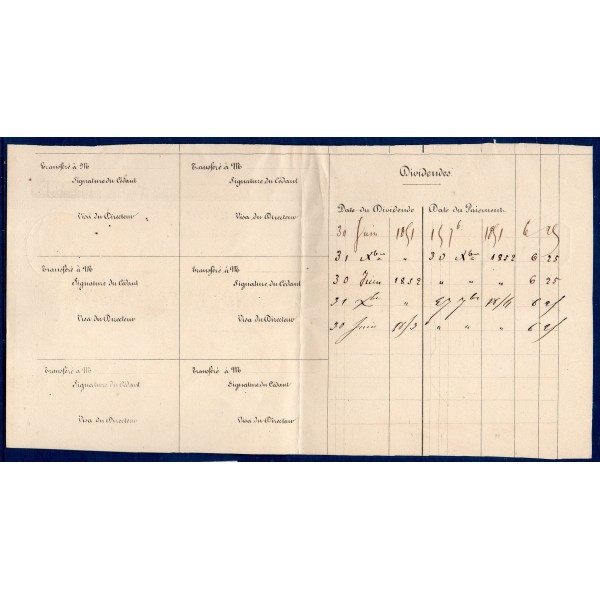 Transféré à M
Signature du Cédant
Visa du Directeur
Transféré à M
Signature du Cédant
Visa du Directeur
Transféré à M
Signature du Cédant
Visa du Directeur
Transféré à M
Signature du Cédant
Visa du Directeur
Transféré à M
Signature du Cédant
Visa du Directeur
Transféré à M
Signature du Cédant
Visa du Directeur
Dividendes
Date du Dividende Date du Paiement
30 Juin 1851 1851 6 25
31 Xbre " 30 Xbre 1852 6 25
30 Juin 1852 " " " 6 25
31 Xbre " 7bre 6 25
30 Juin " " " 6 25